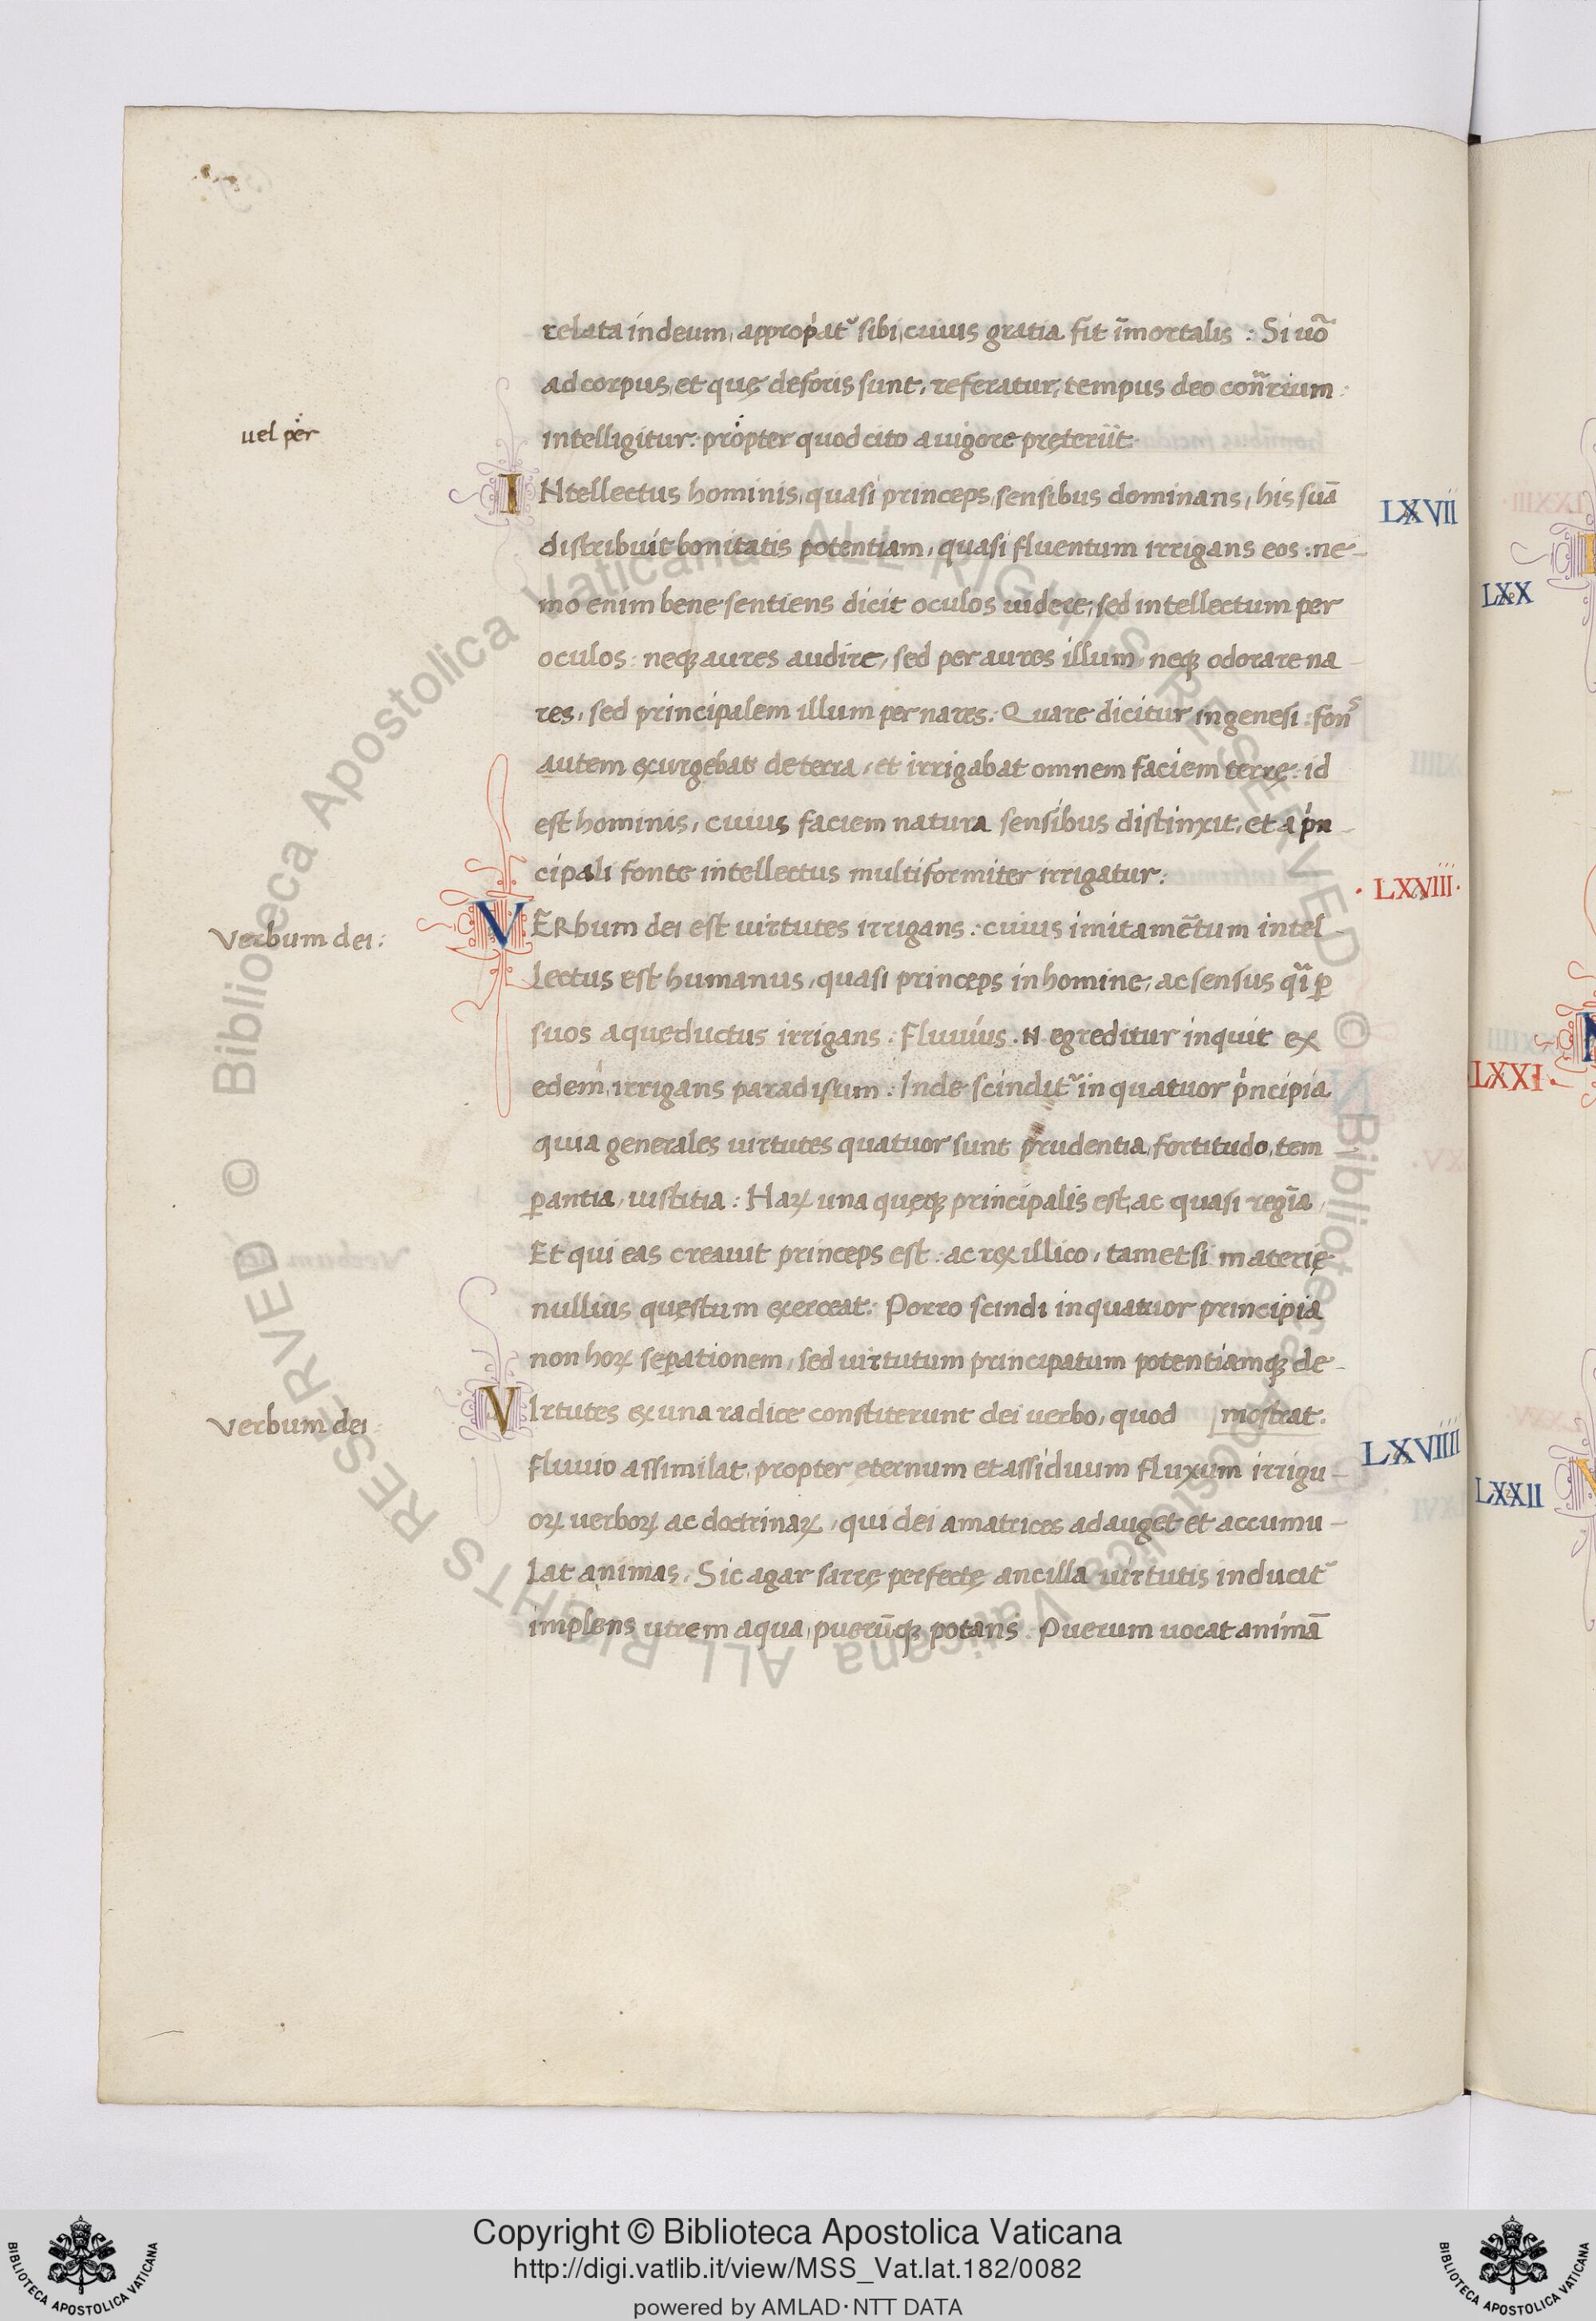 relata in deum, appropat᷑ sibi, cuius gratia fit īmortalis : Si uō
ad corpus, et quę deforis sunt, referatur, tempus deo con̄rium
uel per
intelligitur: propter quod cito a uigore pręteriit·
INtellectus hominis, quasi princeps, sensibus dominans, his suā
LXVII
distribuit bonitatis potentiam, quasi fluentum irrigans eos : ne-
mo enim bene sentiens dicit oculos uidere, sed intellectum per
LXX
oculos : neqȝ aures audire, sed per aures illum, neqȝ odorare na-
res, sed principalem illum per nares : Quare dicitur in genesi : fons
autem exurgebat de terra, et irrigabat omnem faciem terrę : id
est hominis, cuius faciem natura sensibus distinxit, et a prin-
cipali fonte intellectus multiformiter irrigatur :
· LXVIII ·
Verbum dei :
VERbum dei est uirtutes irrigans : cuius imitamētum intel-
lectus est humanus, quasi princeps in homine, ac sensus qͣi ꝑ
suos aquęductus irrigans : Fluuius . N egreditur inquit ex
edem, irrigans paradisum : Inde scindit᷑ in quatuor p̍ncipia
LXXI ·
quia generales uirtutes quatuor sunt prudentia, fortitudo, tem
ꝑantia, iustitia : Haꝝ una quęqȝ principalis est, ac quasi regīa,
Et qui eas creauit princeps est : ac rex illico, tametsi materię
nullius quęstum exerceat : Porro scindi in quatuor principia
non hoꝝ seꝑationem, sed uirtutum principatum potentiamqȝ de-
Verbum dei
VIrtutes ex una radice constiterunt dei uerbo, quod mostrat.
LXVIIII
fluuio assimilat, propter eternum et assiduum fluxum irrigu-
LXXII
oꝝ uerboꝝ ac doctrinaꝝ, qui dei amatrices adauget et accumu-
lat animas. Sic agar sarrę perfectę ancilla uirtutis inducit᷑
implens utrem aqua, puerūqȝ potans : Puerum uocat animā
Copyright © Biblioteca Apostolica Vaticana
http://digi.vatlib.it/view/MSS_Vat.lat.182/0082
powered by AMLAD·NTT DATA
BIBLIOTECA APOSTOLICA VATICANA
BIBLIOTECA APOSTOLICA VATICANA
© Biblioteca Apostolica Vaticana ALL RIGHTS RESERVED © Biblioteca Apostolica Vaticana ALL RIGHTS RESERVED